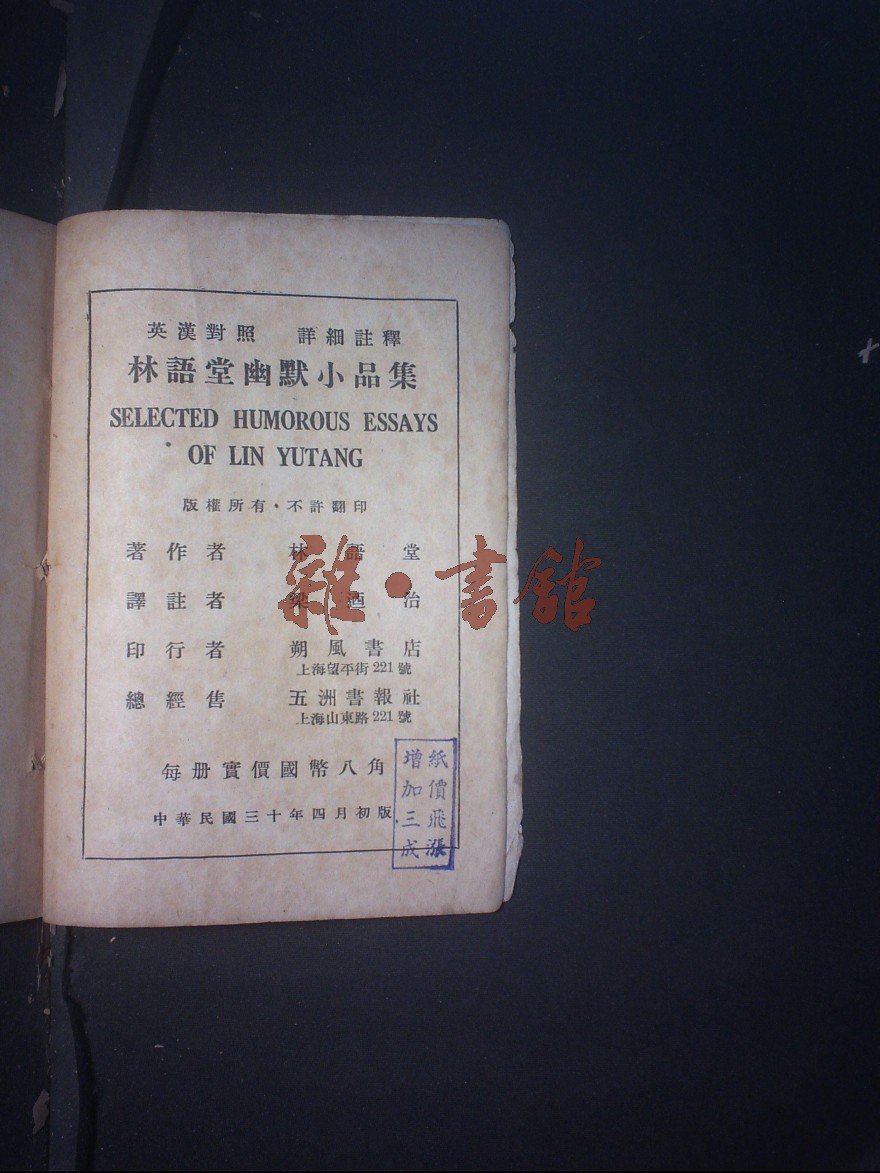 英漢對照 詳細註釋
林語堂幽默小品集
SELECTED HUMOROUS ESSAYS
OF LIN YUTANG
版權所有・不許翻印
著作者 林語堂
譯註者 梁迺治
印行者 朔風書店
上海望平街221號
總經售 五洲書報社
上海山東路221號
每册實價國幣八角
中華民國三十年四月初版
紙價飛漲
增加三成
雜・書館